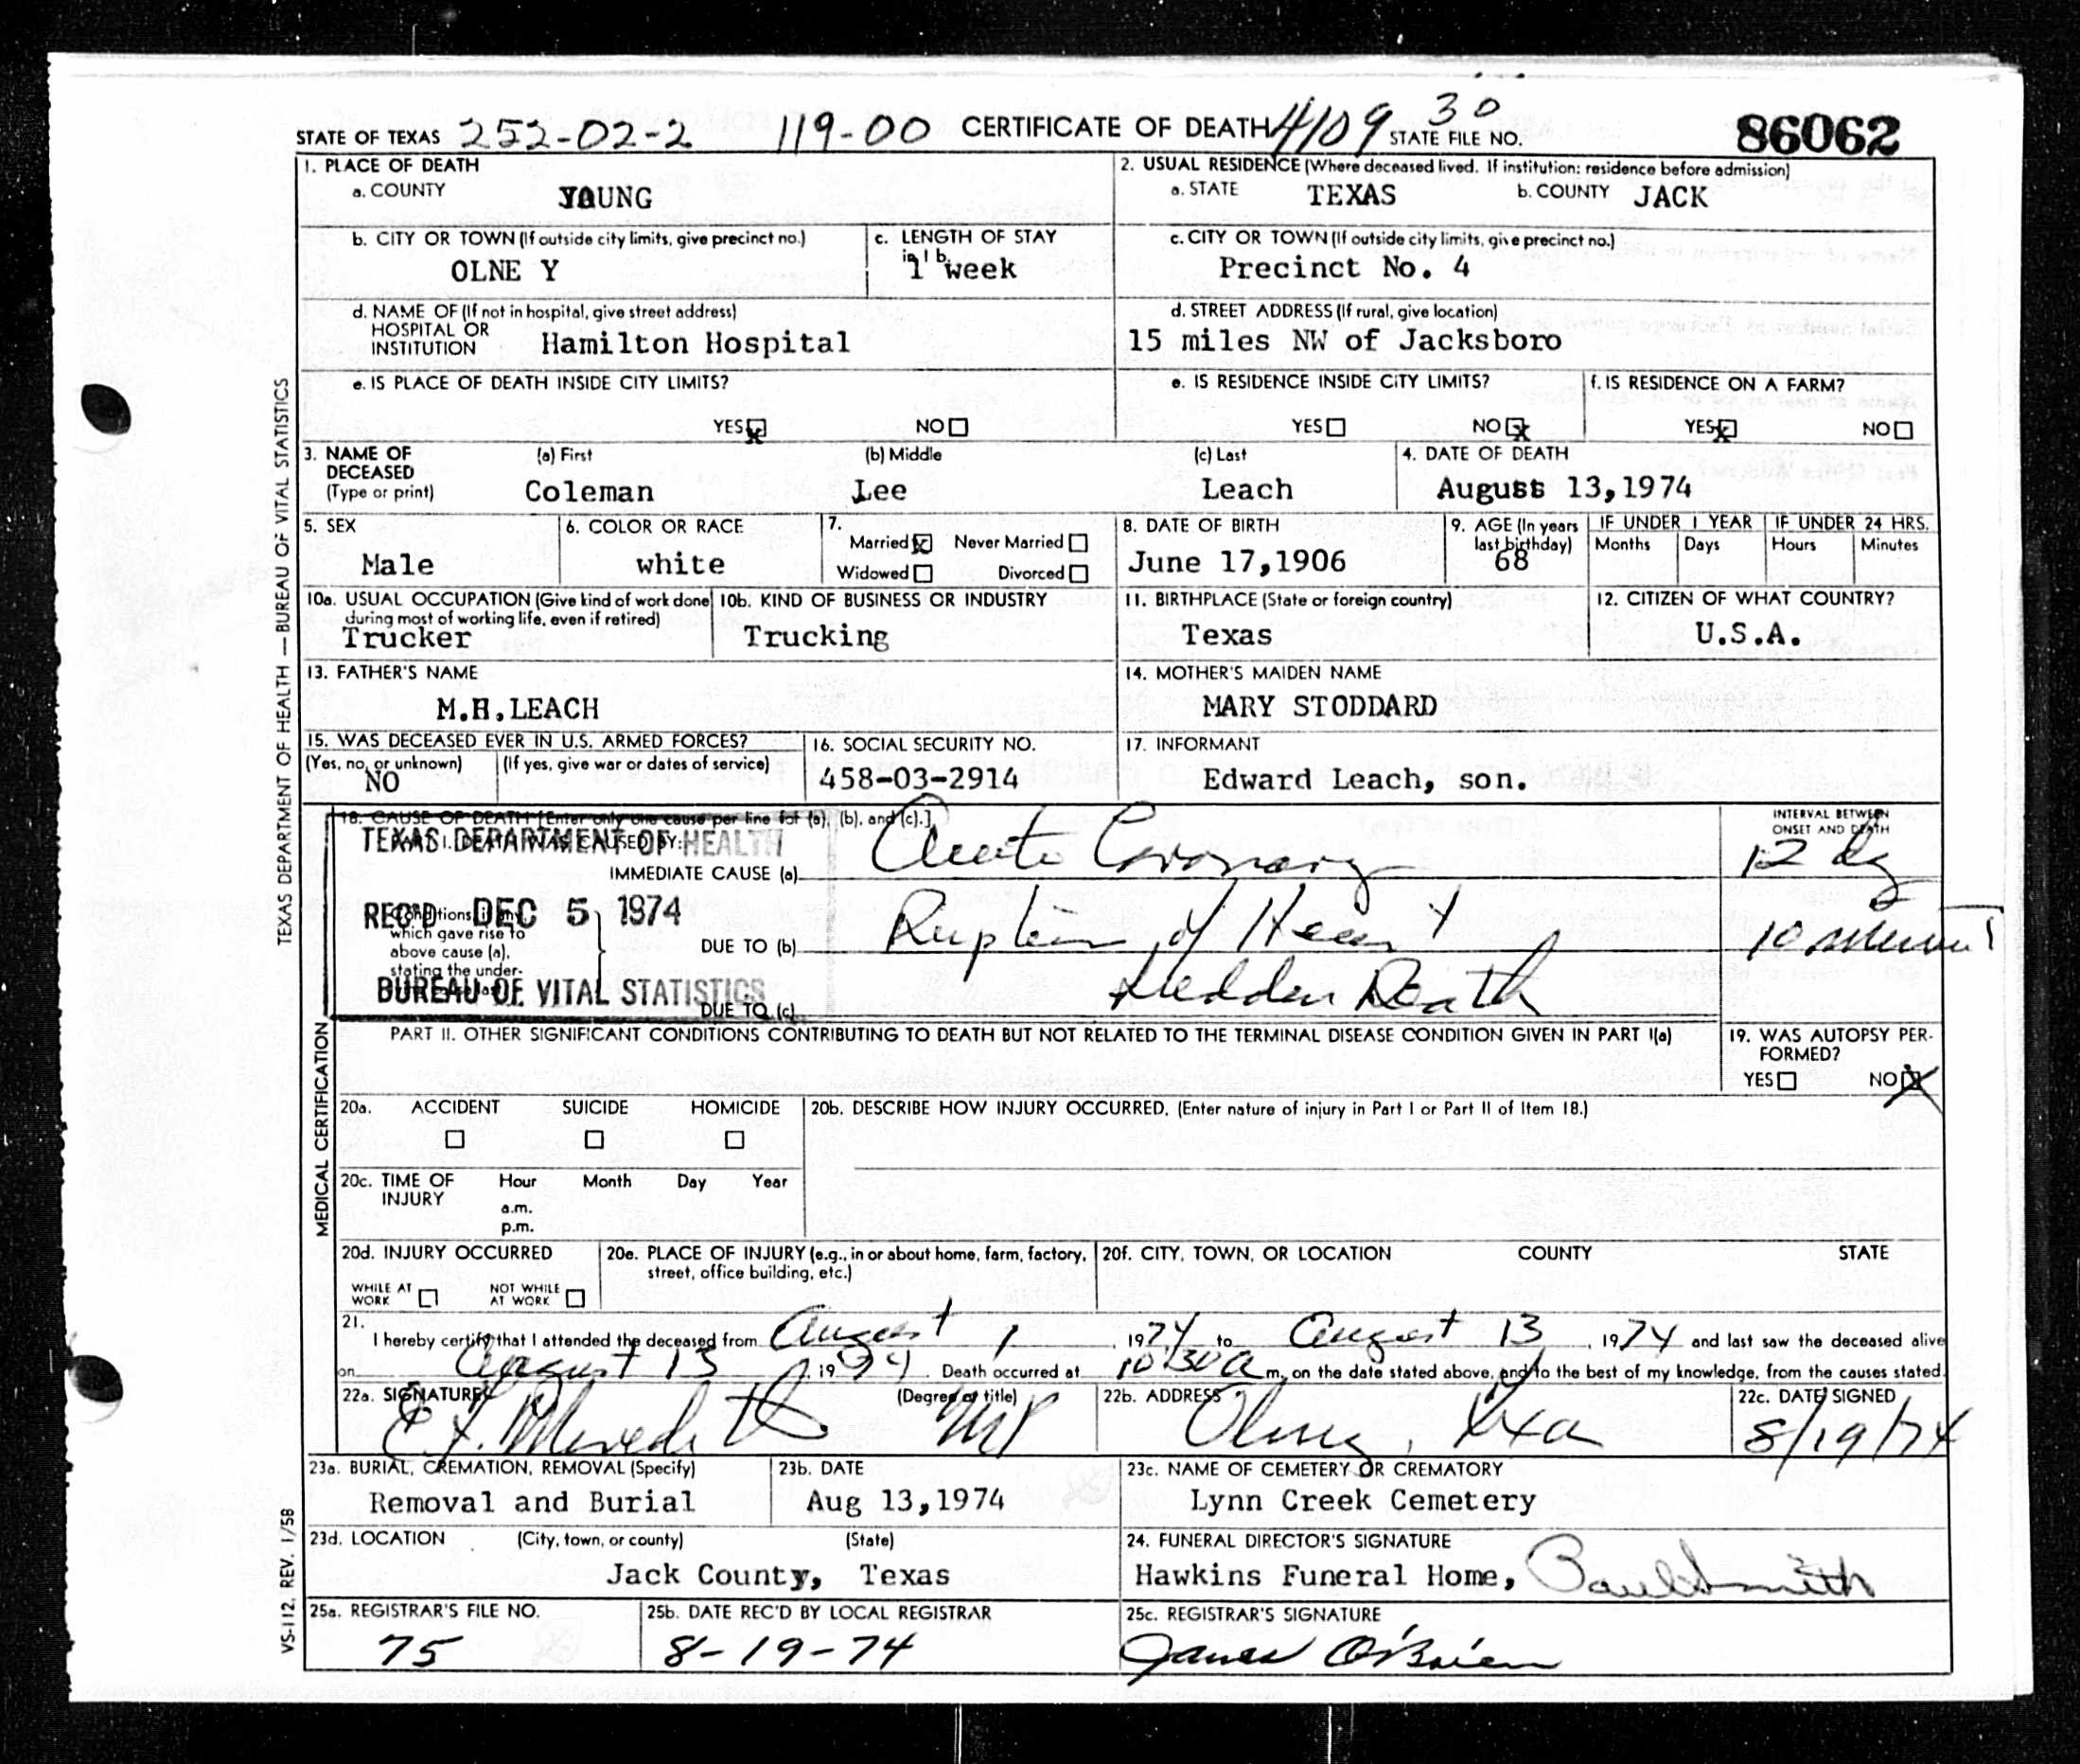 STATE OF TEXAS 252-02-2 119-00 CERTIFICATE OF DEATH 4109 30 STATE FILE NO. 86062
1. PLACE OF DEATH
a. COUNTY YOUNG
2. USUAL RESIDENCE (Where deceased lived. If institution: residence before admission)
a. STATE TEXAS b. COUNTY JACK
b. CITY OR TOWN (If outside city limits, give precinct no.)
OLNE Y
c. LENGTH OF STAY in 1 b.
1 week
c. CITY OR TOWN (If outside city limits, give precinct no.)
Precinct No. 4
d. NAME OF (If not in hospital, give street address)
HOSPITAL OR
INSTITUTION Hamilton Hospital
d. STREET ADDRESS (If rural, give location)
15 miles NW of Jacksboro
e. IS PLACE OF DEATH INSIDE CITY LIMITS?
YES x NO
e. IS RESIDENCE INSIDE CITY LIMITS?
YES NO x
f. IS RESIDENCE ON A FARM?
YES x NO
3. NAME OF DECEASED (Type or print)
(a) First Coleman
(b) Middle Lee
(c) Last Leach
4. DATE OF DEATH
August 13,1974
5. SEX
Male
6. COLOR OR RACE
white
7.
Married x Never Married
Widowed Divorced
8. DATE OF BIRTH
June 17,1906
9. AGE (In years last birthday)
68
IF UNDER 1 YEAR
Months Days
IF UNDER 24 HRS.
Hours Minutes
10a. USUAL OCCUPATION (Give kind of work done
during most of working life, even if retired)
Trucker
10b. KIND OF BUSINESS OR INDUSTRY
Trucking
11. BIRTHPLACE (State or foreign country)
Texas
12. CITIZEN OF WHAT COUNTRY?
U.S.A.
13. FATHER'S NAME
M.H.LEACH
14. MOTHER'S MAIDEN NAME
MARY STODDARD
15. WAS DECEASED EVER IN U.S. ARMED FORCES?
(Yes, no, or unknown) (If yes, give war or dates of service)
NO
16. SOCIAL SECURITY NO.
458-03-2914
17. INFORMANT
Edward Leach, son.
18. CAUSE OF DEATH [Enter only one cause per line for (a), (b), and (c).]
TEXAS DEPARTMENT OF HEALTH
REC'D DEC 5 1974
BUREAU OF VITAL STATISTICS
IMMEDIATE CAUSE (a) Acute Coronary
Conditions, if any,
which gave rise to
above cause (a),
stating the under-
DUE TO (b) Rupture of Heart
DUE TO (c) Sudden Death
INTERVAL BETWEEN
ONSET AND DEATH
12 dy
10
PART II. OTHER SIGNIFICANT CONDITIONS CONTRIBUTING TO DEATH BUT NOT RELATED TO THE TERMINAL DISEASE CONDITION GIVEN IN PART I(a)
19. WAS AUTOPSY PER-
FORMED?
YES NO X
20a. ACCIDENT SUICIDE HOMICIDE
20b. DESCRIBE HOW INJURY OCCURRED. (Enter nature of injury in Part I or Part II of Item 18.)
20c. TIME OF INJURY Hour Month Day Year
a.m.
p.m.
20d. INJURY OCCURRED
WHILE AT WORK NOT WHILE AT WORK
20e. PLACE OF INJURY (e.g., in or about home, farm, factory,
street, office building, etc.)
20f. CITY, TOWN, OR LOCATION COUNTY STATE
21.
I hereby certify that I attended the deceased from August 1, 1974 to August 13, 1974 and last saw the deceased alive
on August 13, 1974. Death occurred at 10:30 a m, on the date stated above, and to the best of my knowledge, from the causes stated.
22a. SIGNATURE (Degree or title)
Meredith MD
22b. ADDRESS
Olney, Texa
22c. DATE SIGNED
8/19/74
23a. BURIAL, CREMATION, REMOVAL (Specify)
Removal and Burial
23b. DATE
Aug 13,1974
23c. NAME OF CEMETERY OR CREMATORY
Lynn Creek Cemetery
23d. LOCATION (City, town, or county) (State)
Jack County, Texas
24. FUNERAL DIRECTOR'S SIGNATURE
Hawkins Funeral Home, Paul Smith
25a. REGISTRAR'S FILE NO.
75
25b. DATE REC'D BY LOCAL REGISTRAR
8-19-74
25c. REGISTRAR'S SIGNATURE
James O'Brien
TEXAS DEPARTMENT OF HEALTH — BUREAU OF VITAL STATISTICS
MEDICAL CERTIFICATION
VS-112, REV. 1/58